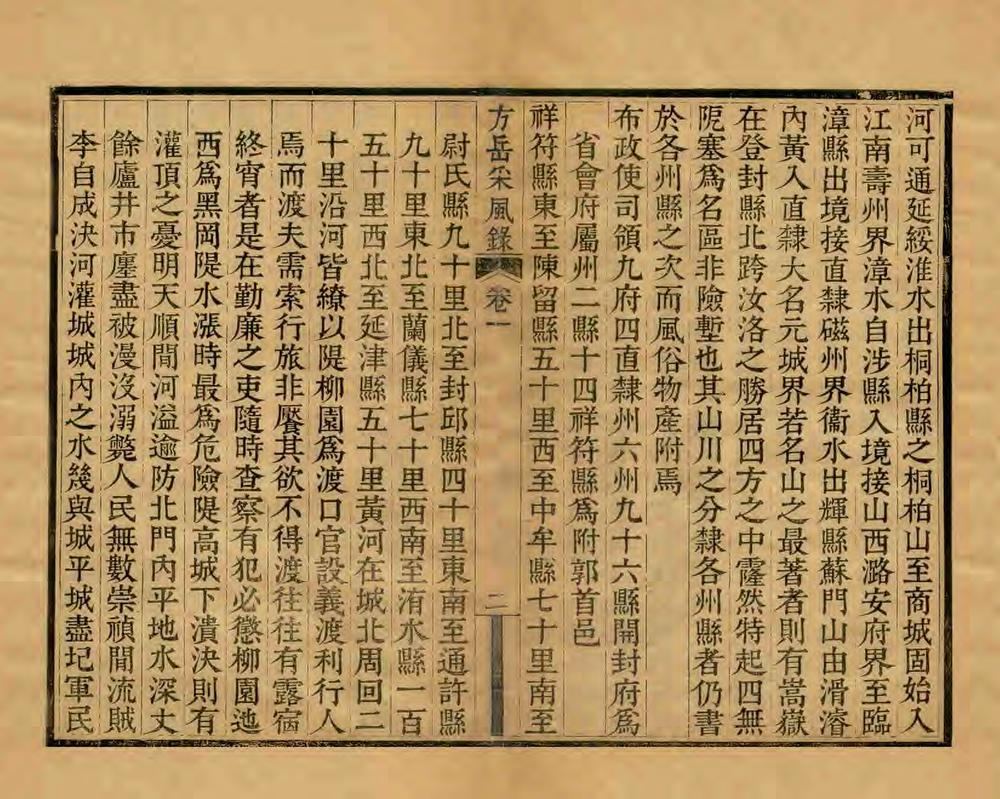 河可通延綏淮水出桐柏縣之桐柏山至商城固始入
江南壽州界漳水自涉縣入境接山西潞安府界至臨
漳縣出境接直隸磁州界衞水出輝縣蘇門山由滑濬
內黃入直隸大名元城界若名山之最著者則有嵩嶽
在登封縣北跨汝洛之勝居四方之中霳然特起四無
阸塞爲名區非險塹也其山川之分隸各州縣者仍書
於各州縣之次而風俗物產附焉
布政使司領九府四直隸州六州九十六縣開封府爲
省會府屬州二縣十四祥符縣爲附郭首邑
祥符縣東至陳留縣五十里西至中牟縣七十里南至
方岳采風錄 卷一 二
尉氏縣九十里北至封邱縣四十里東南至通許縣
九十里東北至蘭儀縣七十里西南至洧水縣一百
五十里西北至延津縣五十里黃河在城北周回二
十里沿河皆繚以隄柳園爲渡口官設義渡利行人
焉而渡夫需索行旅非饜其欲不得渡往往有露宿
終宵者是在勤廉之吏隨時查察有犯必懲柳園迆
西爲黑岡隄水漲時最爲危險隄高城下潰決則有
灌頂之憂明天順閒河溢逾防北門內平地水深丈
餘廬井市廛盡被漫沒溺斃人民無數崇禎閒流賊
李自成決河灌城城內之水幾與城平城盡圮軍民